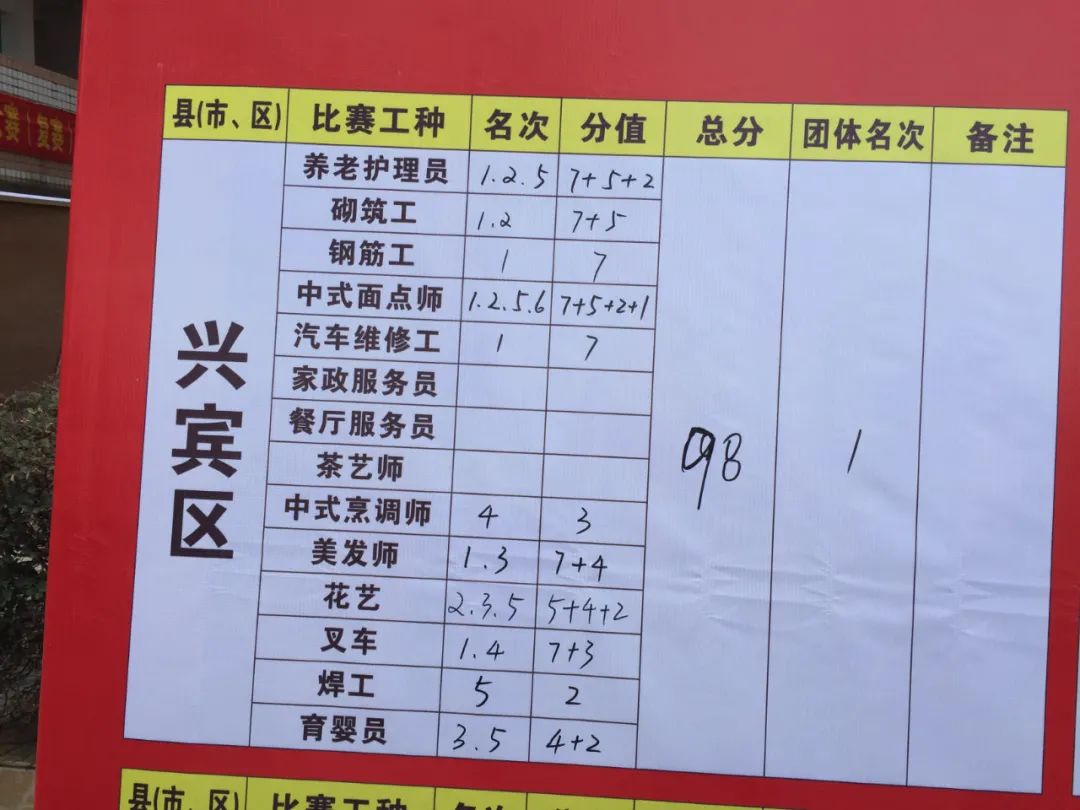 赛（复赛）
县(市、区) 比赛工种 名次 分值 总分 团体名次 备注
兴宾区
养老护理员 1.2.5 7+5+2
砌筑工 1.2 7+5
钢筋工 1 7
中式面点师 1.2.5.6 7+5+2+1
汽车维修工 1 7
家政服务员
餐厅服务员
茶艺师
98 1
中式烹调师 4 3
美发师 1.3 7+4
花艺 2.3.5 5+4+2
叉车 1.4 7+3
焊工 5 2
育婴员 3.5 4+2
县(市、区) 比赛工种 名次